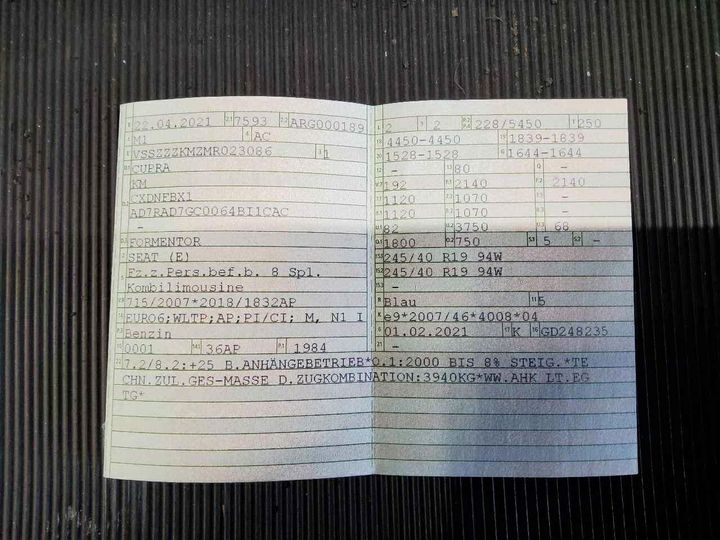 22.04.2021 7593 ARG000189
M1 AC
VSSZZZKMZMR023086 1
CUPRA
KM
CXDNFBX1
AD7RAD7GC0064BI1CAC
-
FORMENTOR
SEAT (E)
Fz.z.Pers.bef.b. 8 Spl.
Kombilimousine
715/2007*2018/1832AP
EURO6;WLTP;AP;PI/CI; M, N1 I
Benzin
0001 36AP 1984
2 2 228/5450 250
4450-4450 1839-1839
1528-1528 1644-1644
- 80 -
192 2140 2140
1120 1070 -
1120 1070 -
82 3750 68
1800 750 5 -
245/40 R19 94W
245/40 R19 94W
-
Blau 5
e9*2007/46*4008*04
01.02.2021 K GD248235
-
7.2/8.2:+25 B.ANHÄNGEBETRIEB*O.1:2000 BIS 8% STEIG.*TE
CHN.ZUL.GES-MASSE D.ZUGKOMBINATION:3940KG*WW.AHK LT.EG
TG*